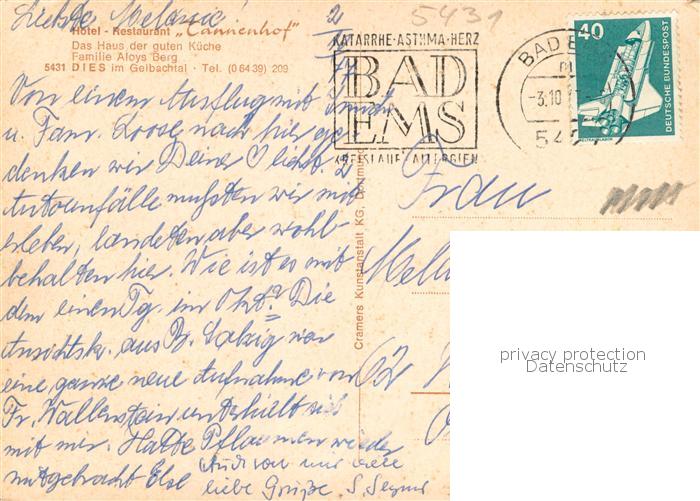 Liebste Melanie!
Hotel - Restaurant „Tannenhof"
Das Haus der guten Küche
Familie Aloys Berg
5431 DIES im Gelbachtal · Tel. (0 64 39) 209
Von einem Ausflug mit
u. Fam. Loose nach hier ge-
denken wir Deine herzlichst. 2
Autounfälle mußten wir mit
erleben, landeten aber wohl-
behalten hier. Wie ist es mit
dem einen Tg. im Okt? Die
Ansichtsk. aus B. Salzig war
eine ganze neue Aufnahme von
Fr. Wallenstein unterhielt sich
mit mir. Hatte Pflaumen wieder
mitgebracht Else
Auch von mir viele
liebe Grüße S.
5431
KATARRHE·ASTHMA·HERZ
BAD
EMS
KREISLAUF·ALLERGIEN
BAD E
-3.10
542
40
DEUTSCHE BUNDESPOST
WELTRAUMLABOR
Cramers Kunstanstalt KG, Dortmund
Frau
Mel
62
privacy protection
Datenschutz